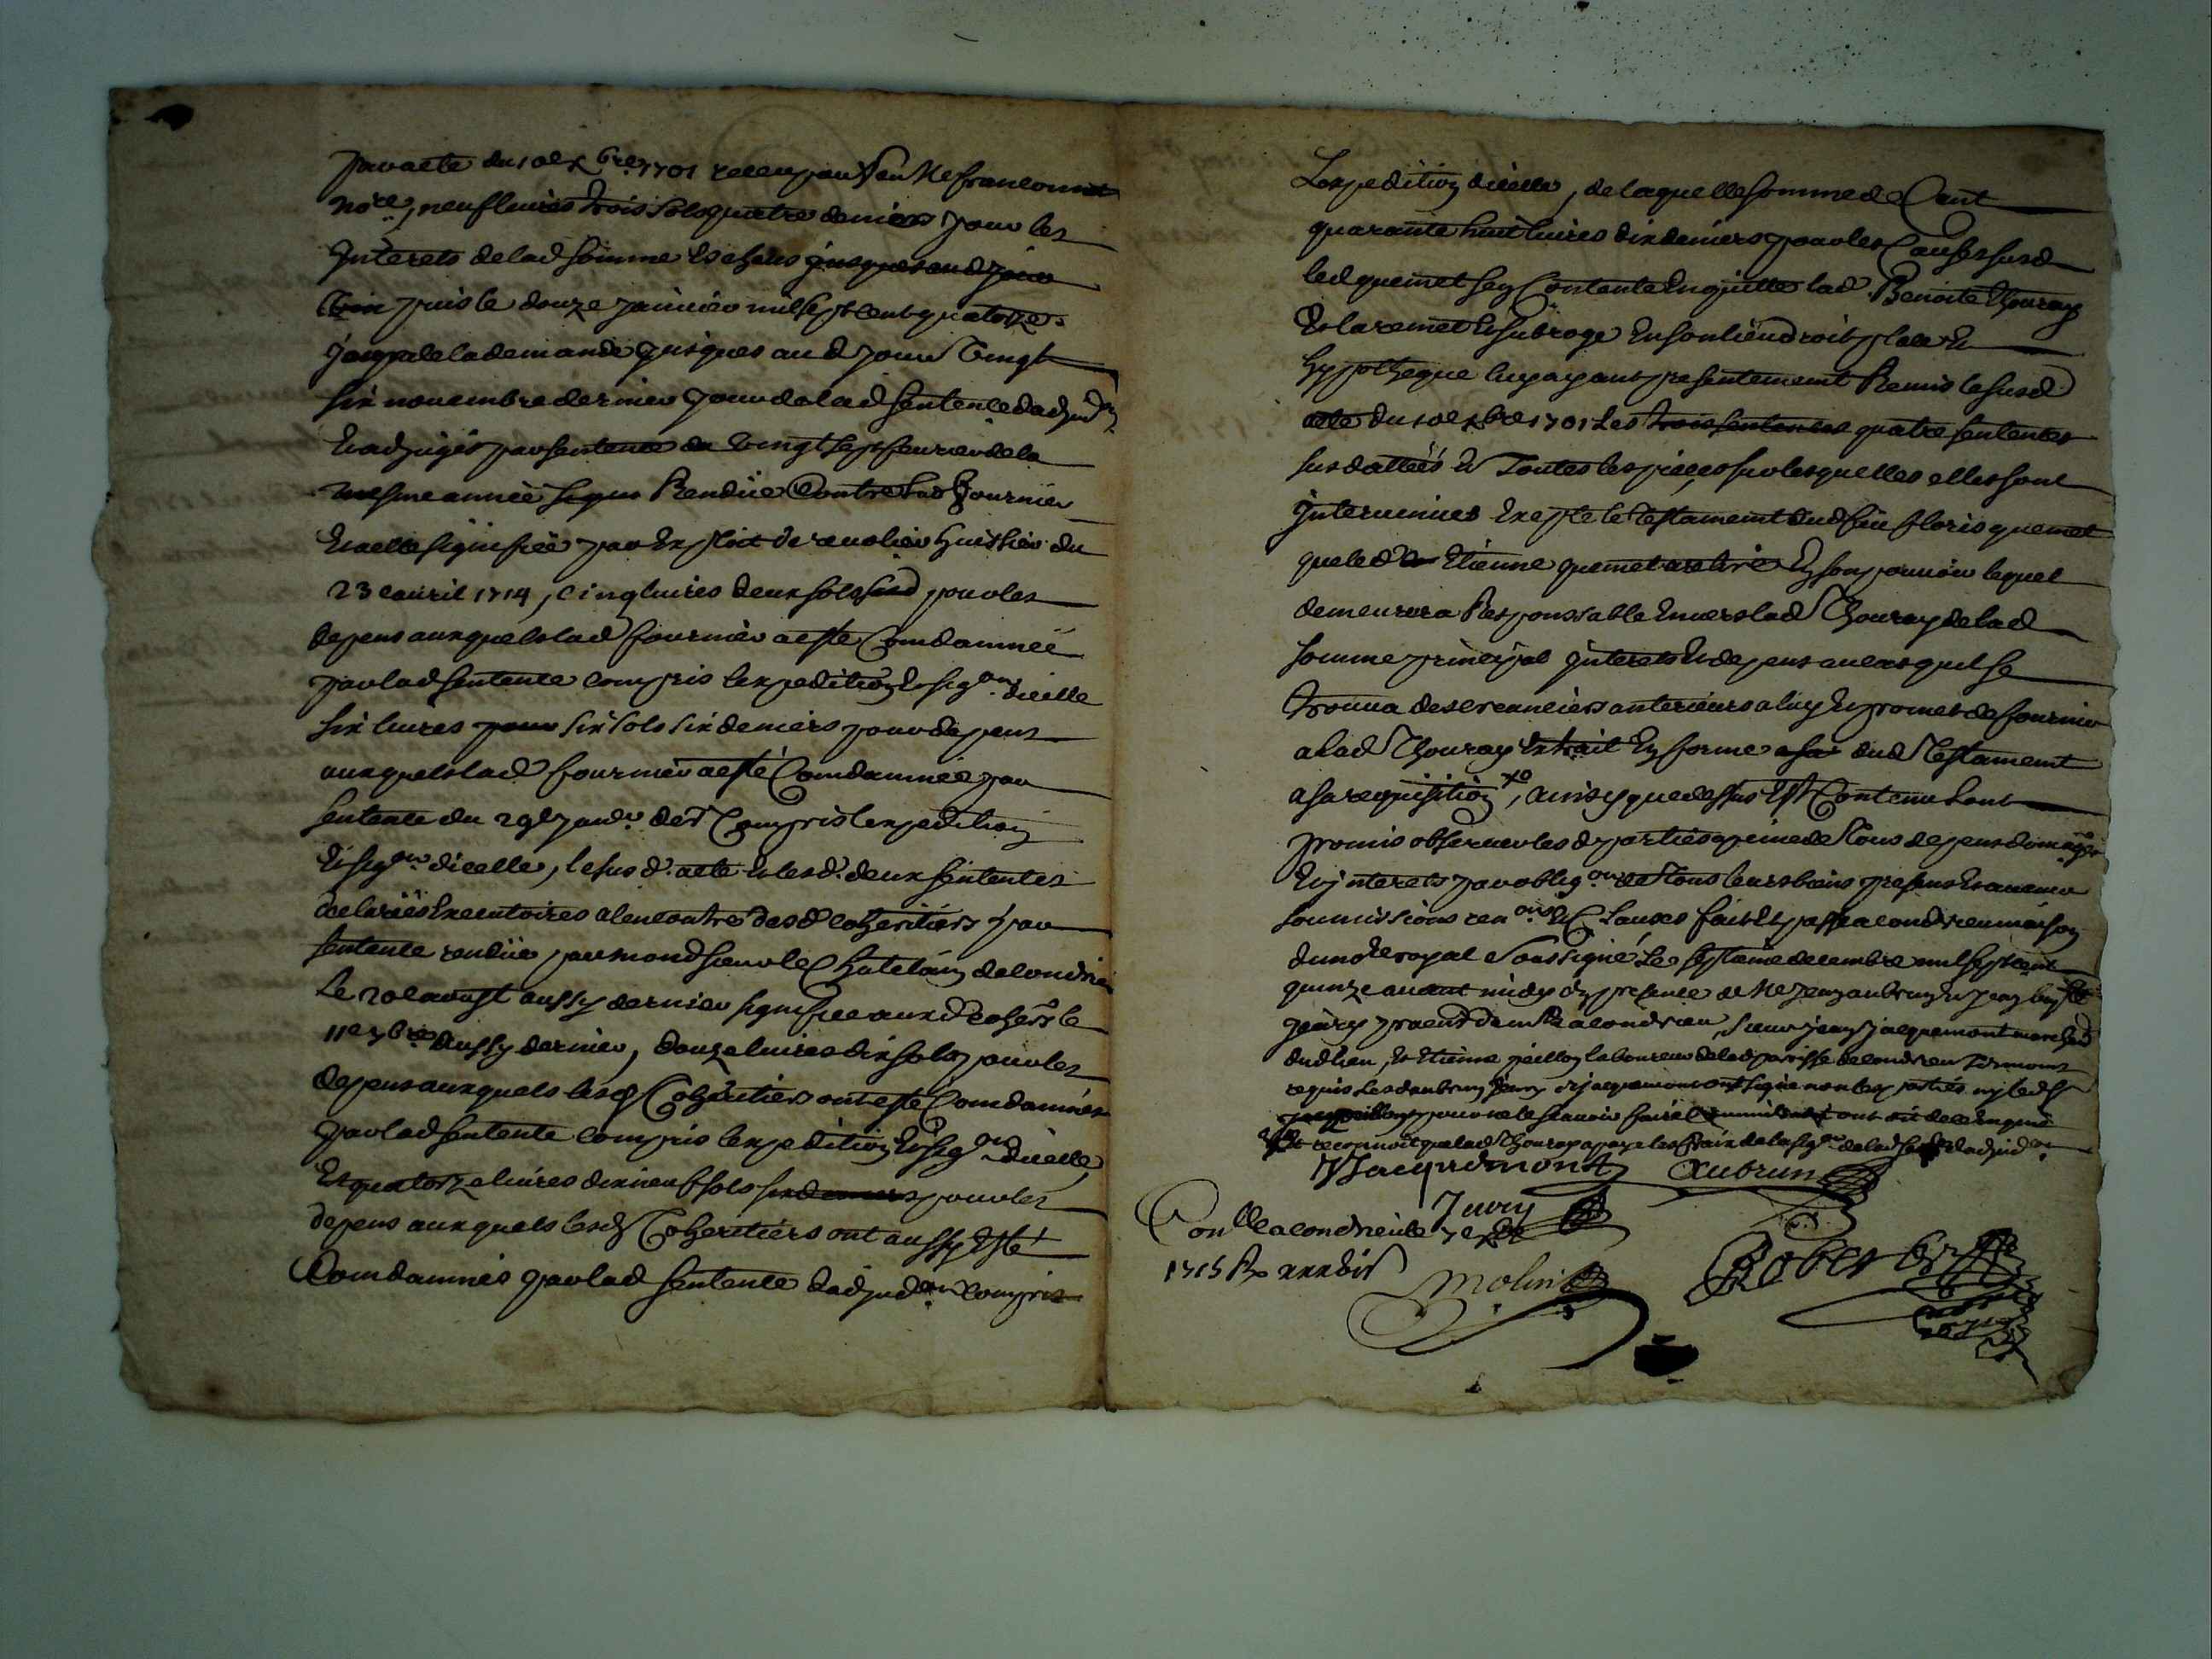 par acte du 10e xbre 1701 receu par feu Me francoumet
nore, neuf livres trois sols quatre deniers pour les
Interets de lad somme escheus jusques aud jour
puis le douze janvier mil sept cent quatorze
jour de la demande jusques aud jour vingt
six novembre dernier jour de lad sentence dadjudon
Et adjugés par sentence du vingt sept feuvrier de la
mesme année Rendue Contre lad fournier
Et a elle signifiée par Exploit de huissier du
23e avril 1714, cinq livres deux sols pour les
depens auxquels lad fournier a este Condamnée
par lad sentence compris lexpedition & sigon dicelle
six livres pour six sols six deniers pour depens
auxquels lad fournier a esté Condamnée par
sentence du 29e der Compris lexpedition
Et sigon dicelle, le susd. acte & lesd. deux sentences
declarées Executoires alencontre desd coheritiers par
sentence rendue par mond sieur le Chatelain de condrieu
Le 20e aoust aussy dernier signifiée auxd coherrs le
11e 7bre aussy dernier, douze livres dix sols pour les
depens auxquels lesd Coheritiers ont esté Condamnés
par lad sentence compris lexpedition & sigon dicelle
Et quatorze livres dix neuf sols six deniers pour les
depens auxquels lesd Coheritiers ont aussy Esté
Condamnés par lad sentence dadjudon compris
Lexpedition dicelle, de laquelle somme de Cent
quarante huit livres dix deniers pour les Causes susd
led quemet sen Contente En quitte lad. Benoite Thouray
Et la remet & subroge En son lieu droit place &
hypotheque luy ayant presentement Remis le susd
acte du 10e xbre 1701 Les trois sentences quatre sentences
sus dattées & Toutes les pieces sur lesquelles elles sont
Intervenues Excepté le testament dud feu floris quemet
que led Etienne quemet a retiré En son pouvoir lequel
demeurera Responssable Envers lad Thouray de lad
somme principal Interets & depens au cas quil se
trouva des creanciers anterieurs a luy Et promet de fournir
a lad Thouray Extrait En forme a sa dud Testament
a sa requisition, ainsy que dessus Est Contenu lont
promis observer les d parties a peine de Tous depens domages
Et Interets par obligon de Tous leurs biens presens & avenir
soumissions renons & Clauses fait & passé a condrieu maison
du nore royal soussigné Le septieme decembre mil sept cent
quinze avant midy En presence de Me Jean aubrun & Jean bapte
Jevry pratd demt a condrieu, sieur Jean jacquemont marchand
dud lieu, & Etienne peillon laboureur de lad parroisse de condrieu Temoins
requis Lesd aubrun Jevry & jacquemont ont signé non les parties ny led
peillon pour ne le scavoir faire ont dit de ce Enquis
& reconnoit que lad Thouray a payé les fraix de la sigon de lad sentce dadjudon
JJacquemont Aubrun
Jevry
Conlle a condrieu le 7e xbre
1715 R
Molin Robert